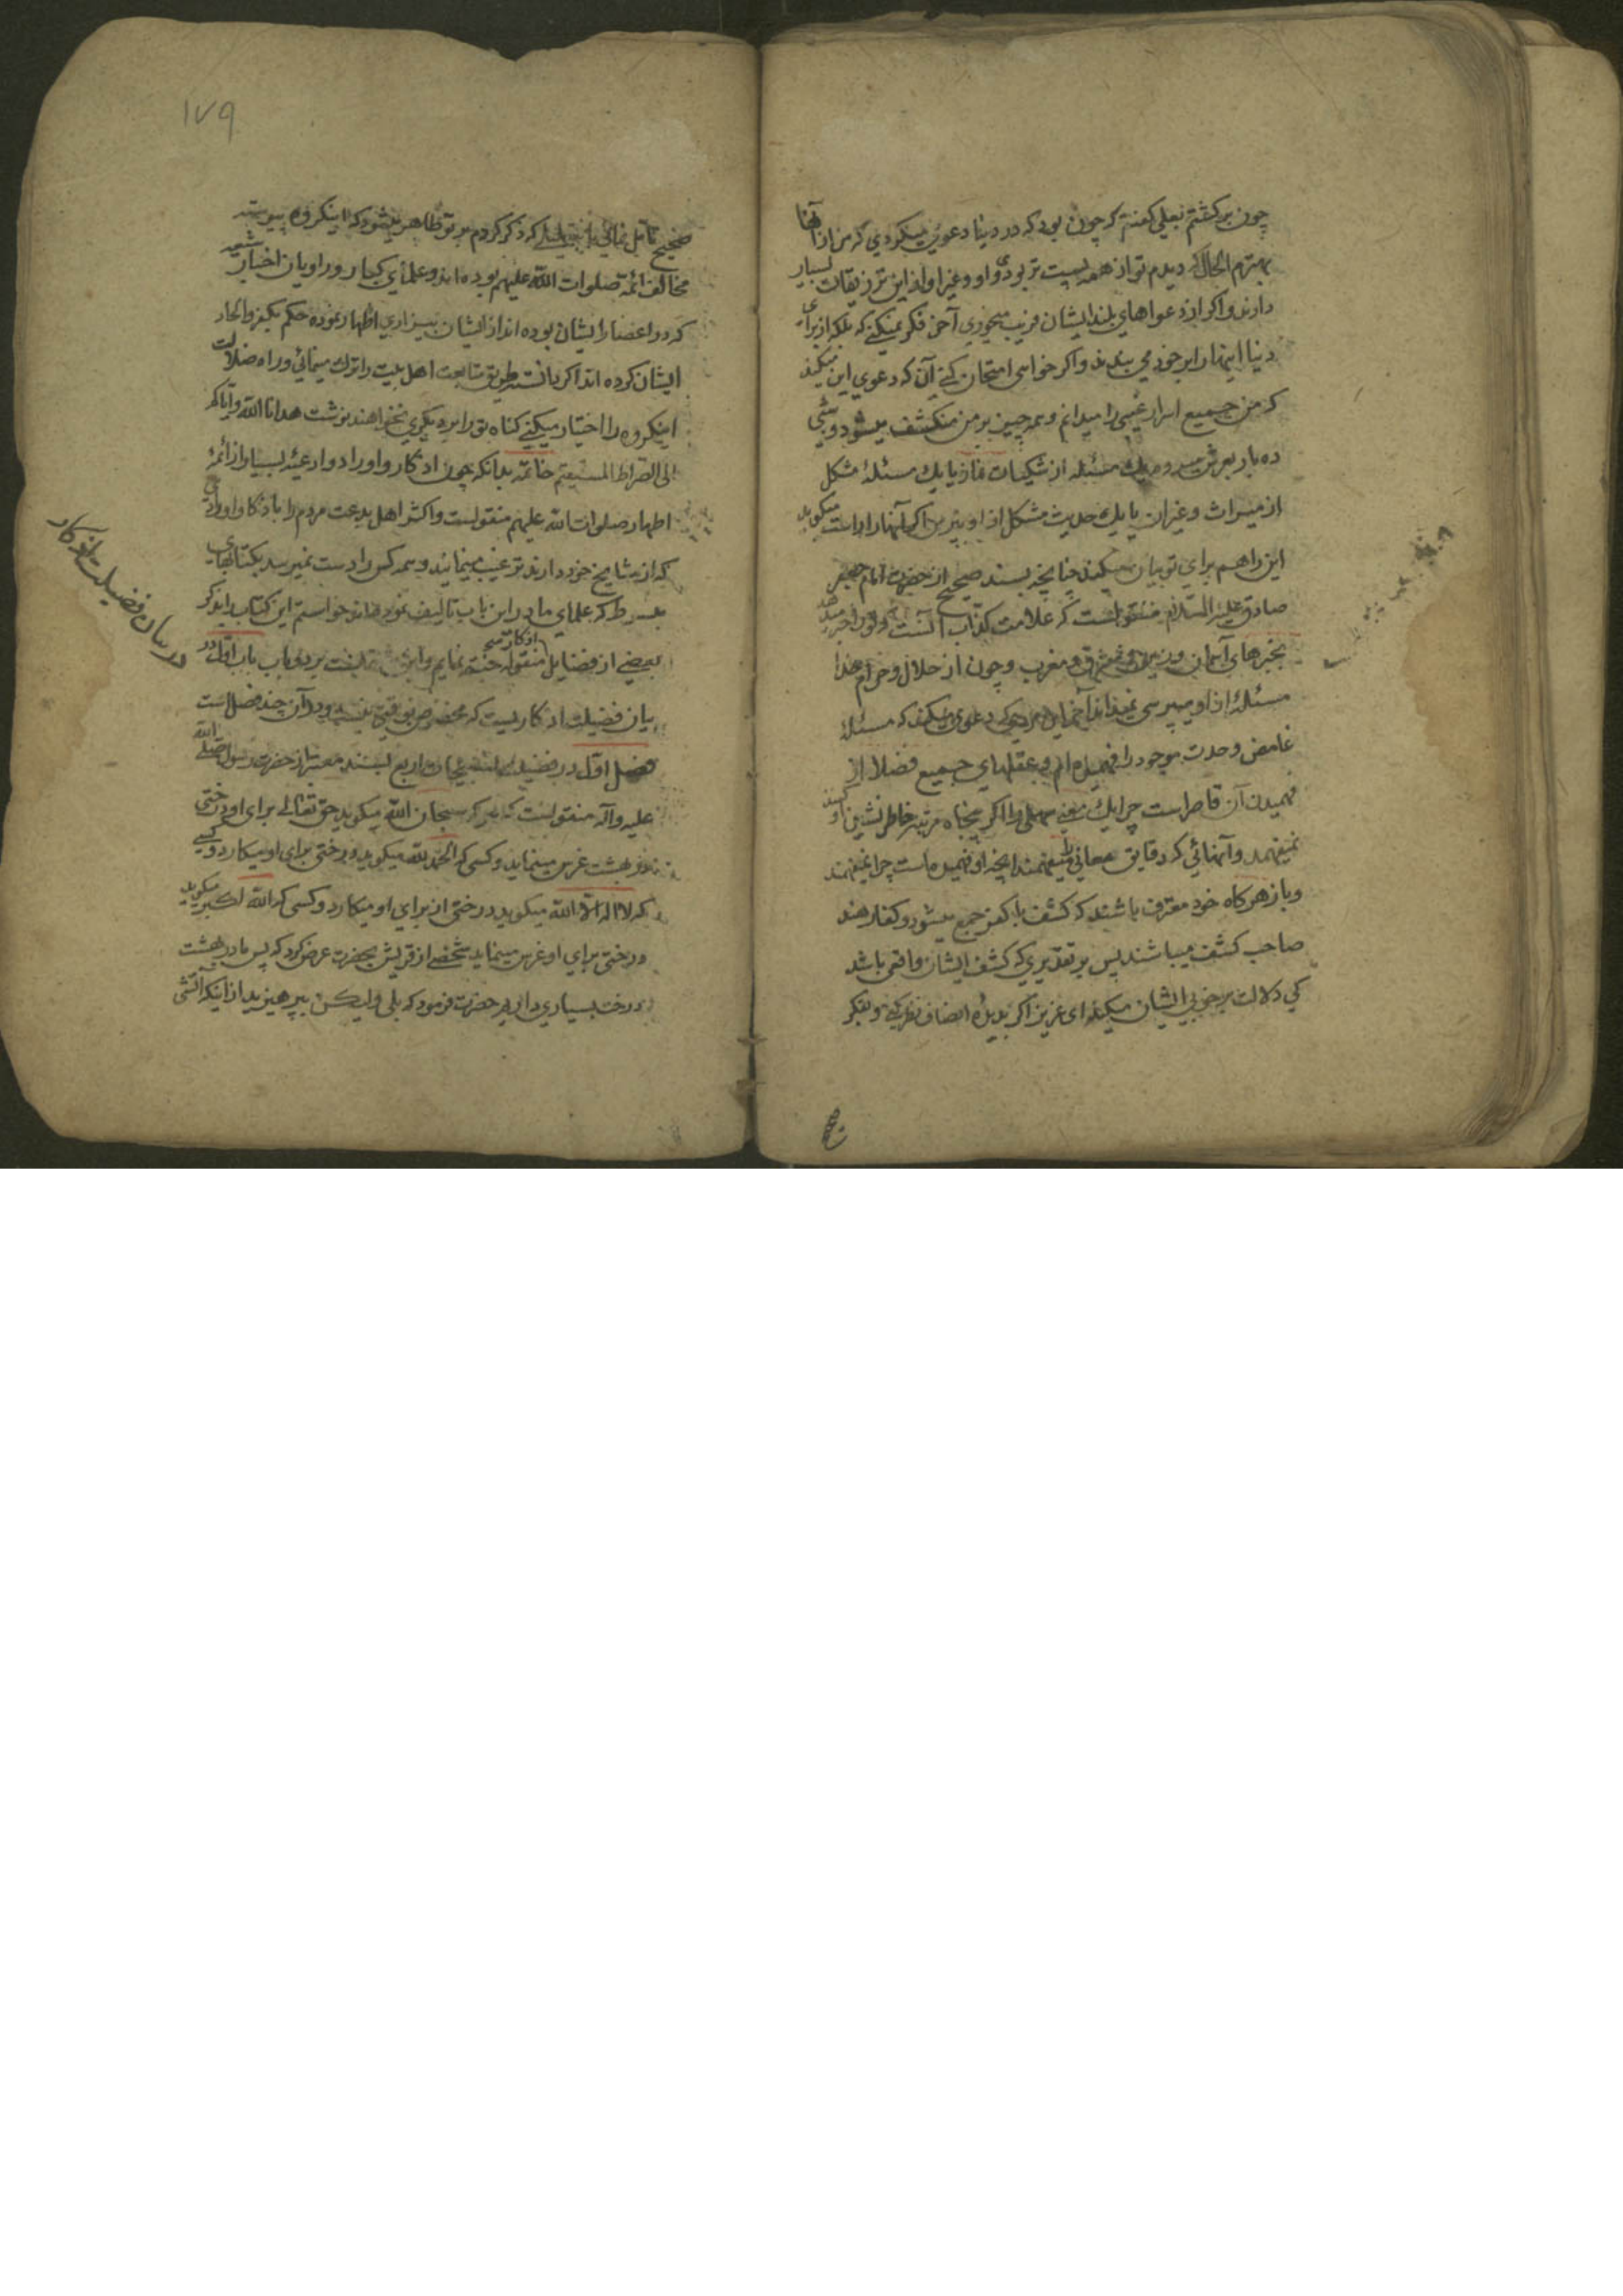 چون برکشتم بعلی کفتم که چون بود که در دنیا دعوی میکردی که من از آنها
بهترم الحال که دیدم تو از همه پست تر بودی و او و غیر او از این تزریقات بسیار
دارند و اکر از دعواهای بلند ایشان فریب میخوری آخر فکر نمیکنی که بلکه از برای
دنیا اینها را بر خود می بندند و اکر خواهی امتحان کنی آن که دعوی این میکند
که من جمیع اسرار غیبی را میدانم و همه چیز بر من منکشف میشود و شبی
ده بار بعرش میروم یک مسئله از شکیات نماز یا یک مسئلهٔ مشکل
از میراث و غیر آن یا یک حدیث مشکل از او بپرس اکر آنها را راست میکوید
این را هم برای تو بیان میکند چنانچه بسند صحیح از حضرت امام جعفر
صادق علیه السلام منقولست که علامت کذاب آنست که تو را خبر میدهد
بخبرهای آسمان و زمین و مشرق و مغرب و چون از حلال و حرام خدا
مسئلهٔ از او میپرسی نمیداند آخر این مردی که دعوی میکند که مسئلهٔ
غامض وحدت موجود را فهمیده ام و عقلهای جمیع فضلا از
فهمیدن آن قاصر است چرا یک معنی سهلی را اکر پنجاه مرتبه خاطرنشین او کنند
نمیفهمد و آنهائی که دقایق معانی را میفهمند آنچه او فهمیده است چرا نمیفهمند
و باز هرکاه خود معترف باشند که کشف با کفر جمع میشود و کفار هند
صاحب کشف میباشند پس بر تقدیری که کشف ایشان واقعی باشد
کی دلالت بر خوبی ایشان میکند ای عزیز اکر بدیدهٔ انصاف نظر کنی و بفکر
۱۷۹
صحیح تامل نمائی که ذکر کردم بر تو ظاهر میشود که اینکروه پیوسته
مخالف ائمه صلوات الله علیهم بوده اند و علمای کبار و راویان اخبار شیعه
که در اعصار ایشان بوده اند از ایشان بیزاری اظهار نموده حکم بکفر و الحاد
ایشان کرده اند اکر دانسته طریق متابعت اهل بیت را ترک مینمائی و راه ضلالت
اینکروه را اختیار میکنی کناه تو را بر دیکری نخواهند نوشت هدانا الله و ایاکم
الی الصراط المستقیم خاتمه بدانکه چون اذکار و اوراد و ادعیه بسیار از ائمهٔ
اطهار صلوات الله علیهم منقولست و اکثر اهل بدعت مردم را باذکار و اورادی
که از مشایخ خود دارند ترغیب مینمایند و همه کس را دست نمیرسد بکتابهای
مبسوط که علمای ما در این باب تالیف نموده اند خواستم این کتاب را بذکر
بعضی از فضایل اذکار منقوله ختم نمایم و این مشتملست بر دو باب باب اول در
بیان فضیلت اذکاریست که مخصوص بوقتی نیست و در آن چند فصل است
فصل اول در فضیلت تسبیحات اربع بسند معتبر از حضرت رسول صلی الله
علیه و آله منقولست که هر که سبحان الله میکوید حق تعالی برای او درختی
در بهشت غرس مینماید و کسی که الحمد لله میکوید درختی برای او میکارد و کسی
که لا اله الا الله میکوید درختی از برای او میکارد و کسی که الله اکبر میکوید
درختی برای او غرس مینماید شخصی از قریش بحضرت عرض کرد که پس ما در بهشت
درخت بسیاری داریم حضرت فرمود که بلی ولیکن بپرهیزید از اینکه آتشی
در بیان فضیلت اذکار